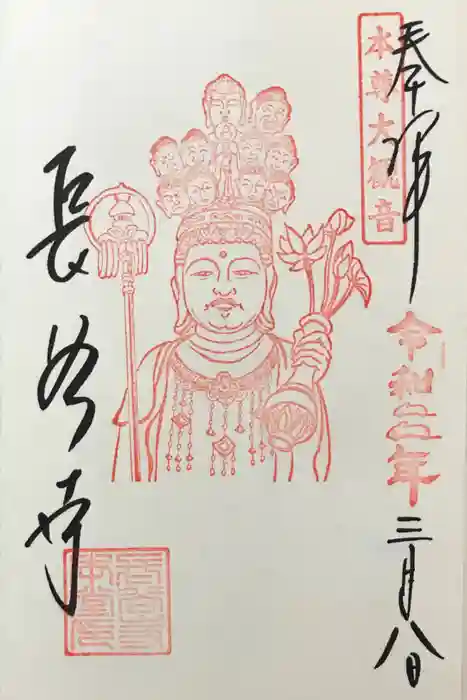 奉拝
本尊大観音
令和二年
三月八日
長谷寺